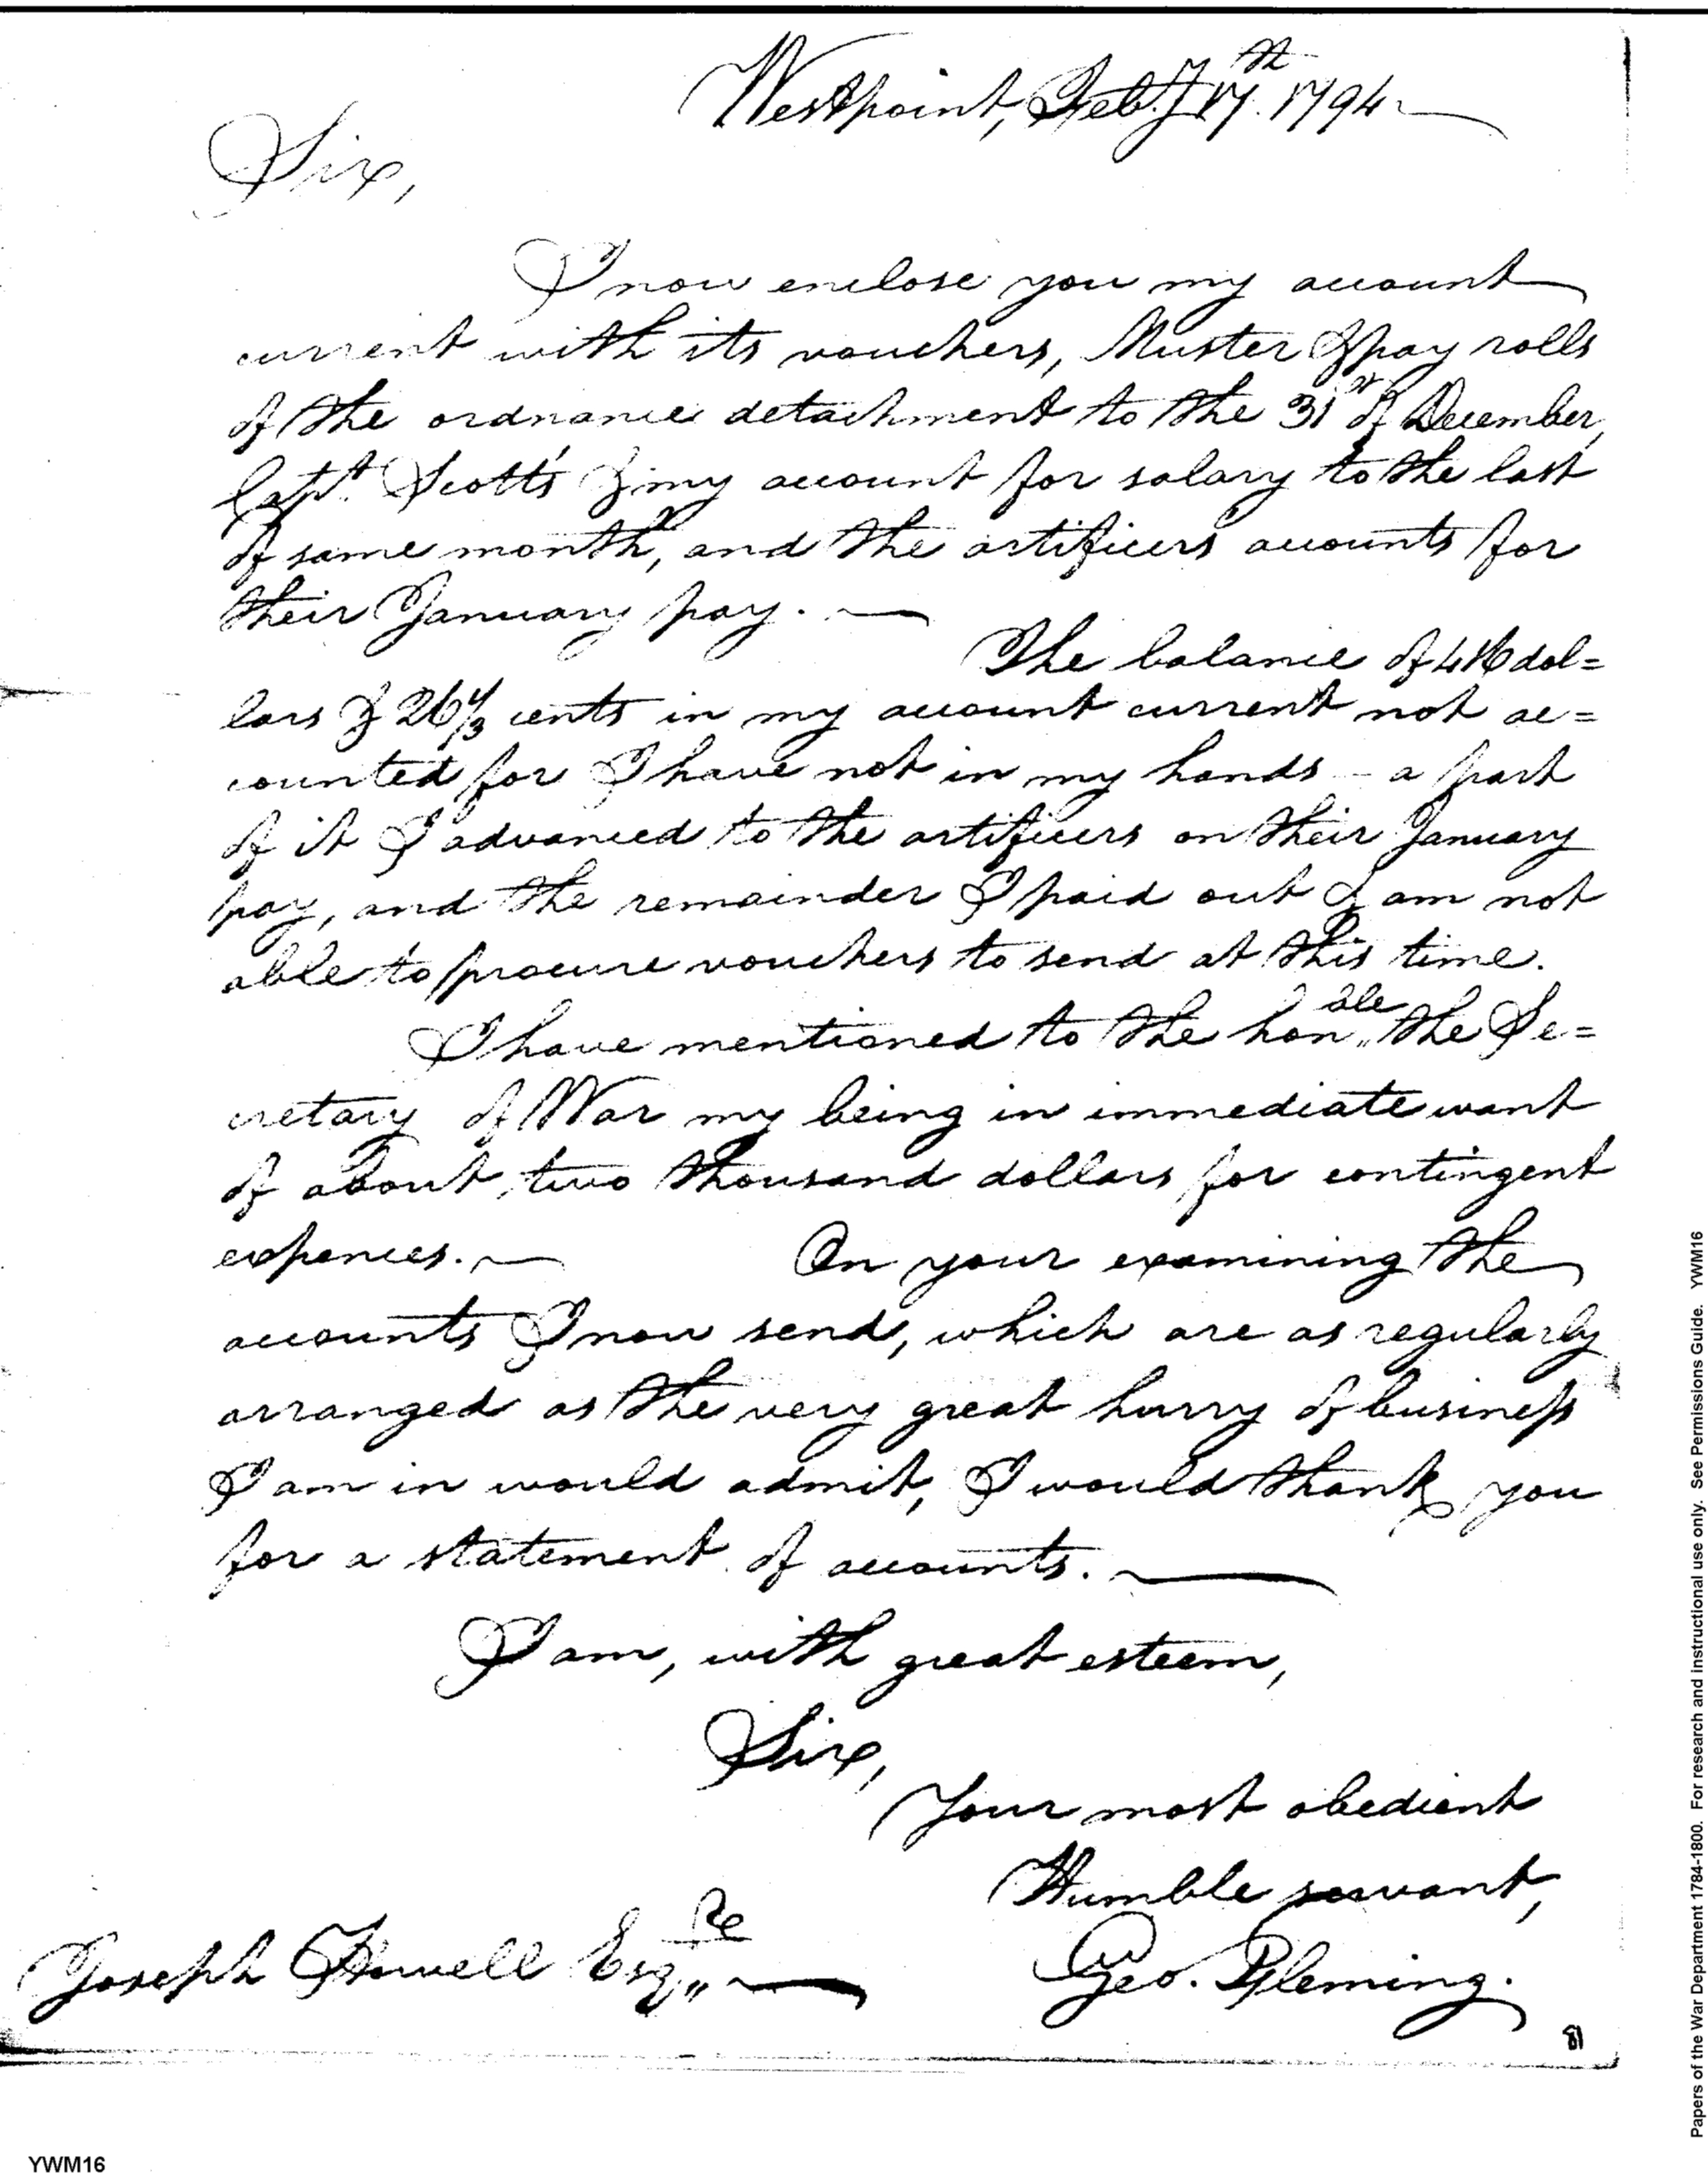 Westpoint, Feby. 17th. 1794
Sir,
I now enclose you my account
current with its vouchers, Muster & pay rolls
of the ordnance detachment to the 31st of December,
Capt. Scott's & my account for salary to the last
of same month, and the artificers accounts for
their January pay. —
The balance of 416 dol=
lars & 26 1/3 cents in my account current not ac=
counted for I have not in my hands – a part
of it I advanced to the artificers on their January
pay, and the remainder I paid out I am not
able to procure vouchers to send at this time.
I have mentioned to the honble the Se=
cretary of War my being in immediate want
of about two thousand dollars for contingent
expences. —
On your examining the
accounts I now send, which are as regularly
arranged as the very great hurry of business
I am in would admit, I would thank you
for a statement of accounts. —
I am, with great esteem,
Sir,
Your most obedient
Humble servant,
Geo. Fleming.
Joseph Howell Esqre —
81
YWM16
Papers of the War Department 1784-1800. For research and instructional use only. See Permissions Guide. YWM16